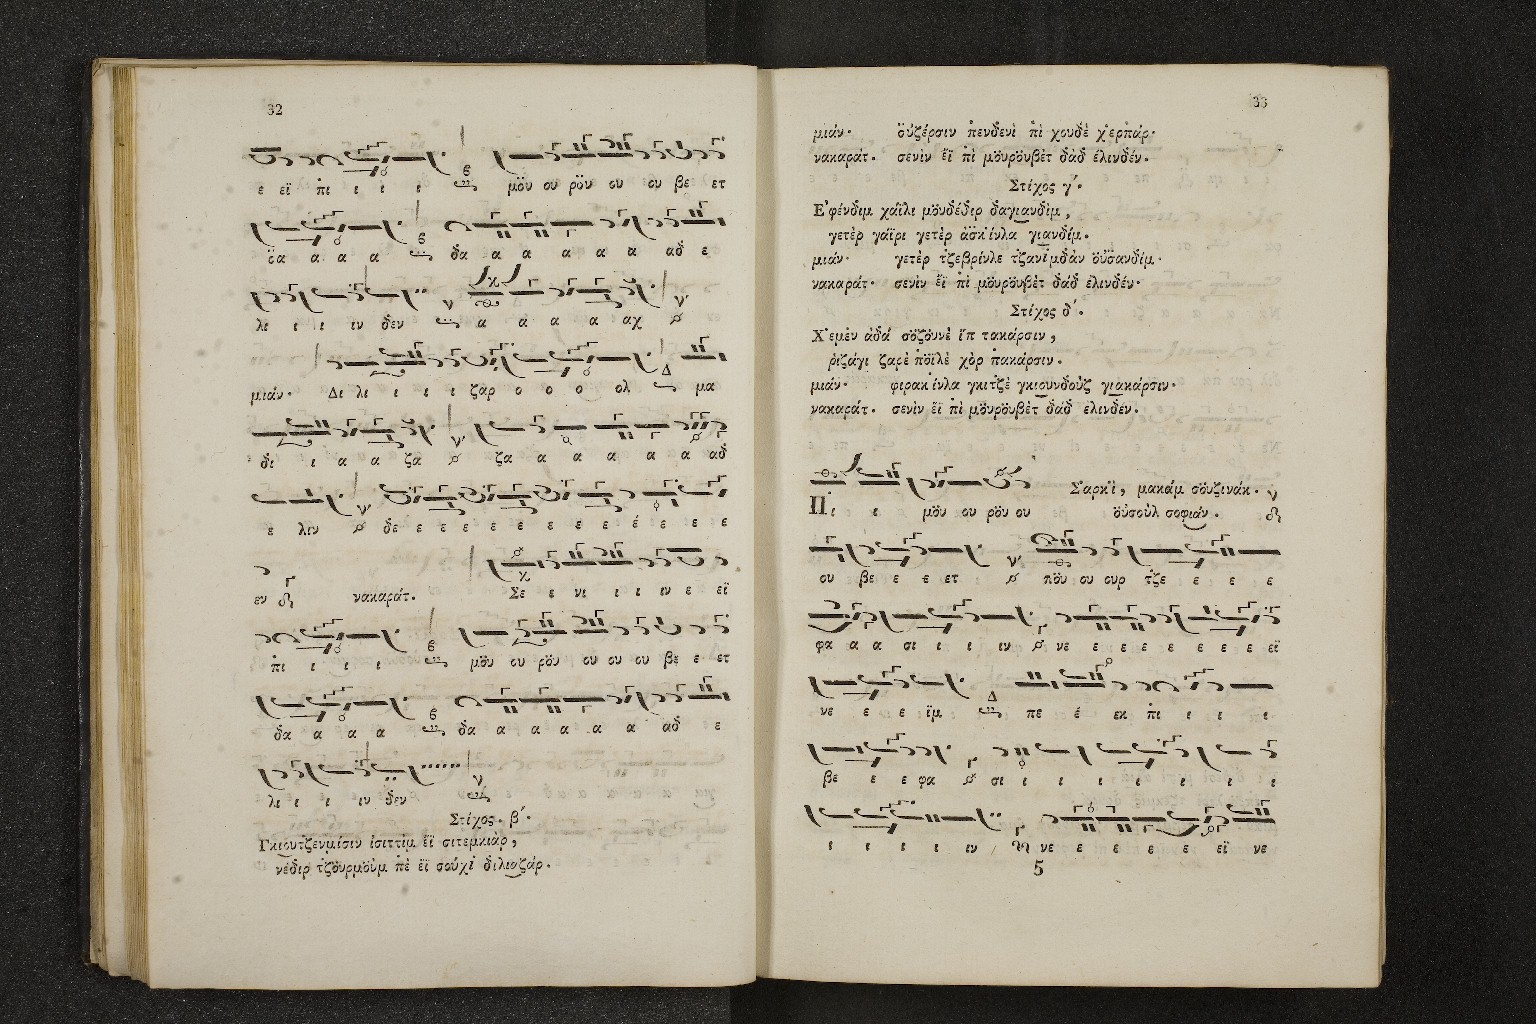 32
ε εϊ πι ι ι ι μὄυ ου ρὄυ ου ου βε ετ
α α α δα α α α α α αδ ε
λι ι ι ιν δεν α α α α αχ
μιάν· Δι λι ι ι ι ζαρ ο ο ο ολ μα
δι ι α α ζα ζα α α α α α αδ
ε λιν δε ε ε ε ε ε ε ε ε έ ε ε ε
εν νακαράτ. Σε ε νι ι ι ιν ε εϊ
πι ι ι ι μὄυ ου ρὄυ ου ου ου βε ε ετ
δα α α α δα α α α α α αδ ε
λι ι ι ιν δεν
Στίχος. β΄.
Γκιουτζενμίσιν ἰσιττὶμ ἔϊ σιτεμκιὰρ,
νέδιρ τζὄυρμὄυμ πὲ ἔϊ σούχἰ διλιαζάρ.
33
μιάν· ὄυζέρσιν πενδενὶ πὶ χουδὲ χ᾽ερπάρ·
νακαράτ. σενὶν ἔϊ πὶ μὄυρὄυβὲτ δὰδ ἐλινδέν.
Στίχος γ΄.
Ε᾽φένδιμ χάϊλι μὄυδέδὶρ δαγιανδὶμ,
γετὲρ γαΐρι γετὲρ ἀσκἰνλα γιανδίμ.
μιάν· γετὲρ τζεβρίνλε τζανἰμδὰν ὄυσανδίμ·
νακαράτ· σενὶν ἔϊ πὶ μὄυρὄυβὲτ δὰδ ἐλινδέν·
Στίχος δ΄.
Χ᾽εμὲν ἀδὰ σὄζὄυνὲ ἴπ τακάρσιν,
ῥιζάγι ζαρὲ πὄϊλὲ χὸρ πακάρσιν.
μιάν· φιρακἰνλα γκιτζὲ γκιουνδοὺζ γιακάρσιν·
νακαράτ. σενὶν ἔϊ πὶ μὄυρὄυβὲτ δὰδ ἐλινδέν.
Σ᾽αρκὶ, μακάμ σὄυζινάκ.
Πι ι μὄυ ου ρὄυ ου ὄυσοὺλ σοφιάν.
ου βε ε ε ετ πὄυ ου ουρ τζε ε ε ε
φα α α σι ι ι ιν νε ε ε ε ε ε ε ε εϊ
νε ε ε ϊμ πε έ εκ πι ι ι ι
βε ε ε φα σι ι ι ι ι ι ι ι
ι ι ι ι ιν νε ε ε ε ε εϊ νε
5